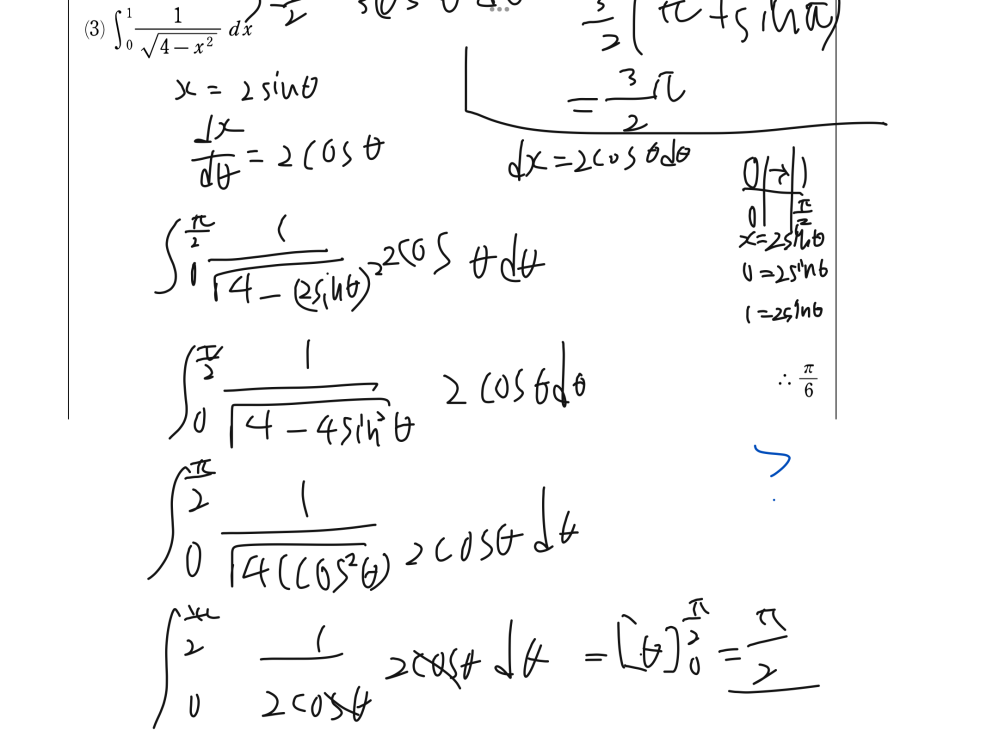 (3) ∫₀¹ 1/√(4−x²) dx
3/2 (π + sinπ)
= 3/2 π
x = 2sinθ
dx/dθ = 2cosθ
dx = 2cosθdθ
0 → 1
0 | π/2
x = 2sinθ
0 = 2sinθ
1 = 2sinθ
∫₀^(π/2) 1/√(4 − (2sinθ)²) 2cosθdθ
∫₀^(π/2) 1/√(4 − 4sin²θ) 2cosθdθ
∴ π/6
?
∫₀^(π/2) 1/√(4(cos²θ)) 2cosθdθ
∫₀^(π/2) 1/(2cosθ) 2cosθ dθ = [θ]₀^(π/2) = π/2